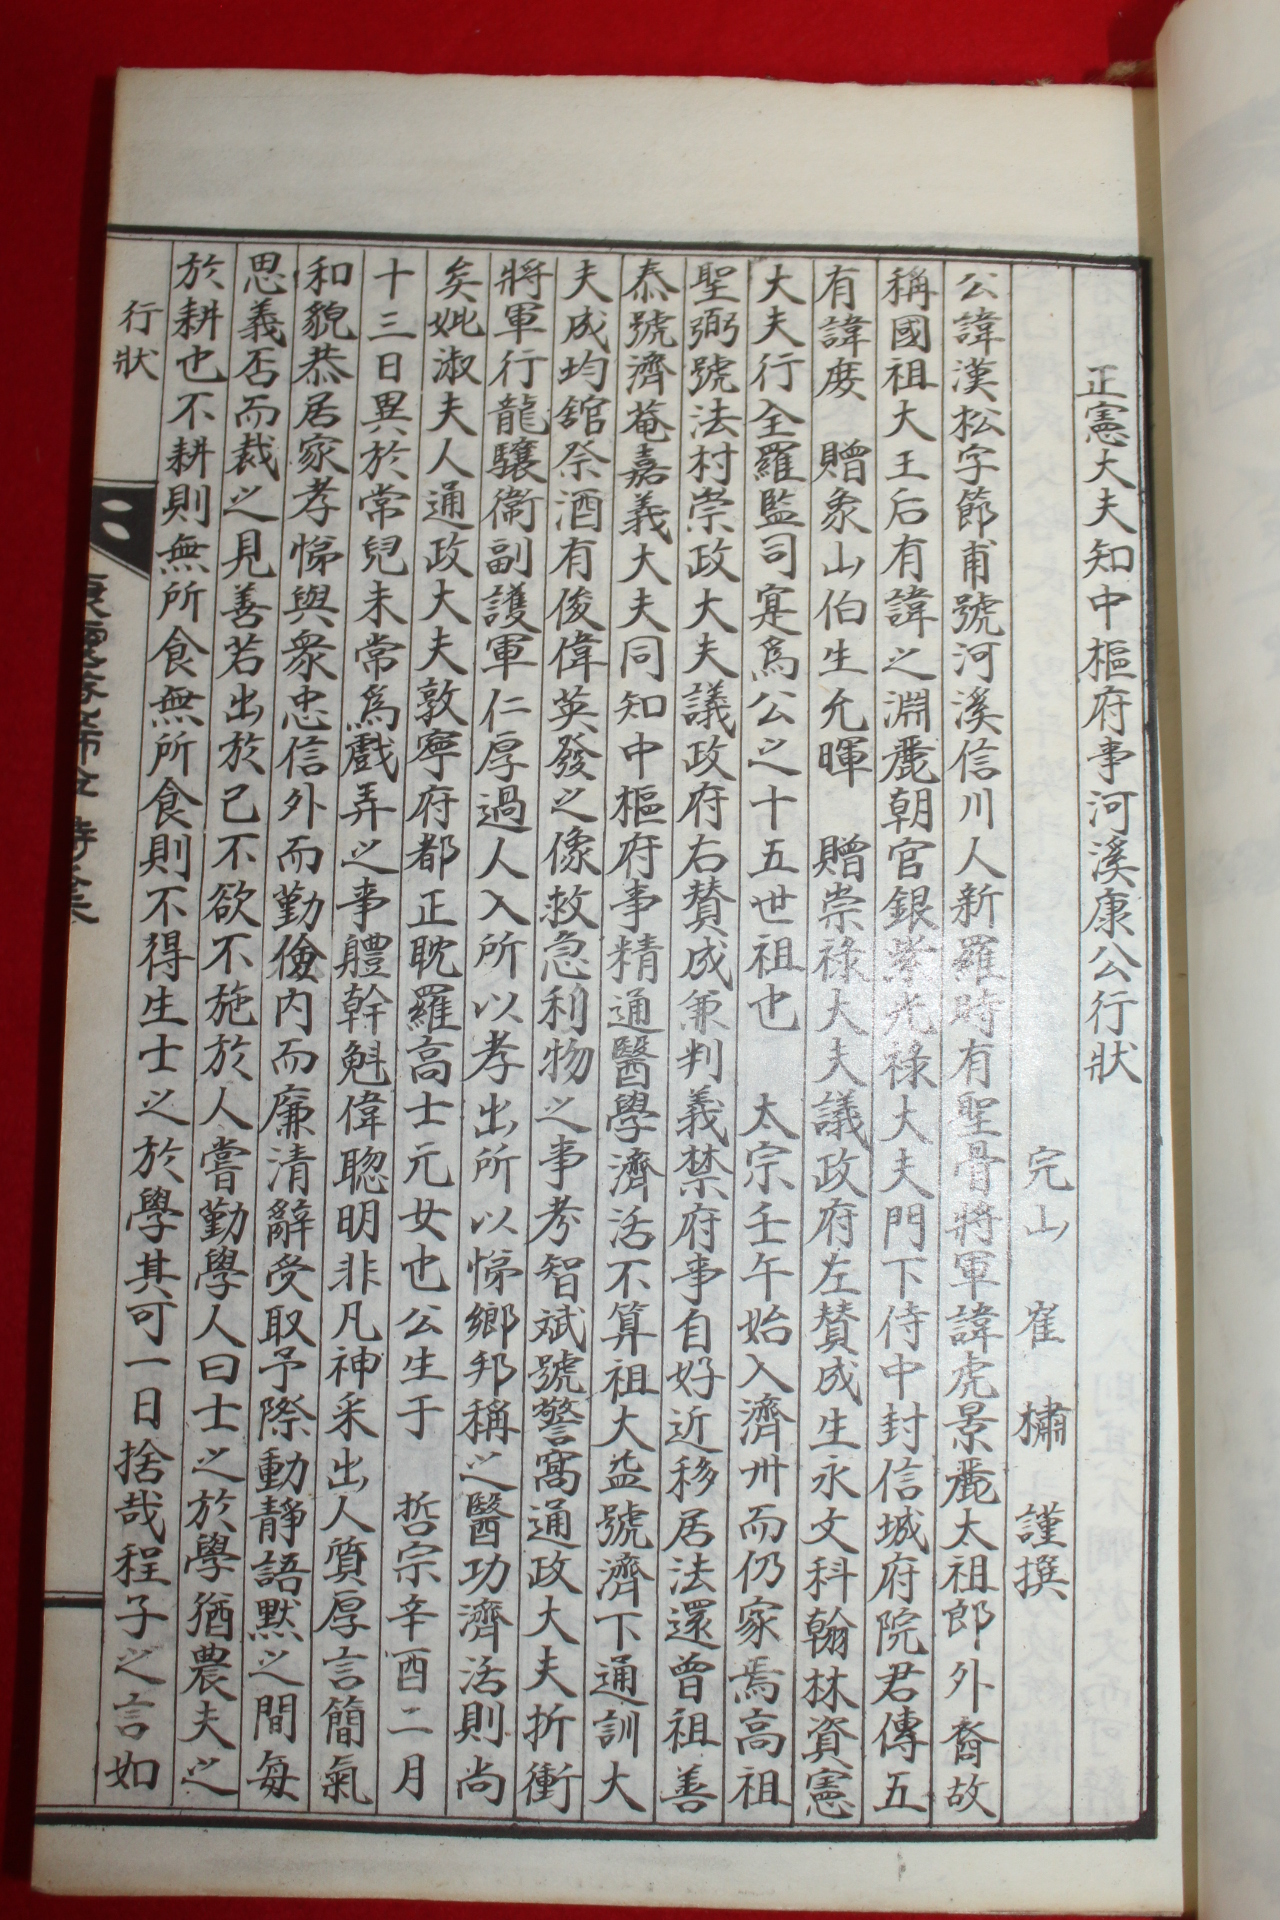 正憲大夫知中樞府事河溪康公行狀
完山 崔 橚 謹撰
公諱漢松字節甫號河溪信川人新羅時有聖骨將軍諱虎景麗太祖郎外裔故
稱國祖大王后有諱之淵麗朝官銀紫光祿大夫門下侍中封信城府院君傳五
有諱庋 贈象山伯生允暉 贈崇祿大夫議政府左贊成生永文科翰林資憲
大夫行全羅監司寔爲公之十五世祖也 太宗壬午始入濟州而仍家焉高祖
聖弼號法村崇政大夫議政府右賛成兼判義禁府事自好近移居法還曾祖善
泰號濟菴嘉義大夫同知中樞府事精通醫學濟活不算祖大益號濟下通訓大
夫成均舘祭酒有俊偉英發之像救急利物之事考智斌號警窩通政大夫折衝
將軍行龍驤衛副護軍仁厚過人入所以孝出所以悌鄉邦稱之醫功濟活則尚
矣妣淑夫人通政大夫敦寧府都正耽羅高士元女也公生于 哲宗辛酉二月
十三日異於常兒未常爲戲弄之事軆幹魁偉聦明非凡神采出人質厚言簡氣
和貌恭居家孝悌與衆忠信外而勤儉內而廉清辭受取予際動靜語默之間每
思義否而裁之見善若出於己不欲不施於人嘗勤學人曰士之於學猶農夫之
於耕也不耕則無所食無所食則不得生士之於學其可一日捨哉程子之言如
行狀